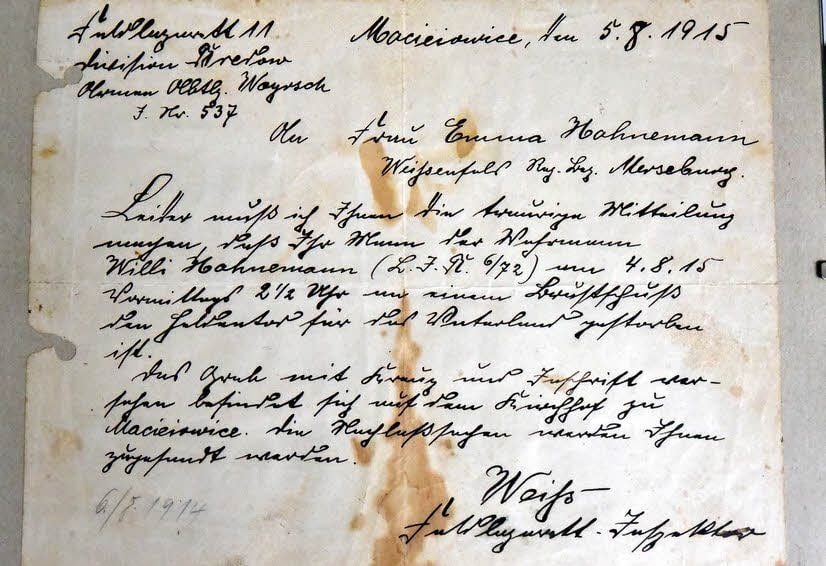 Feldlazarett 11
Maciejowice, den 5.8.1915
Division Bredow
Armee Abtlg. Woyrsch
J. Nr. 537
An Frau Emma Hohnemann
Weißenfels Reg. Bez. Merseburg.
Leider muß ich Ihnen die traurige Mitteilung
machen, daß Ihr Mann der Wehrmann
Willi Hohnemann (L. I. R. 6/72) am 4.8.15
Vormittags 2 1/2 Uhr an einem Brustschuß
den Heldentod für das Vaterland gestorben
ist.
Das Grab mit Kreuz und Inschrift ver-
sehen befindet sich auf dem Kirchhof zu
Maciejowice. Die Nachlaßsachen werden Ihnen
zugesandt werden.
Weiß
Feldlazarett-Inspektor
6./8. 1914